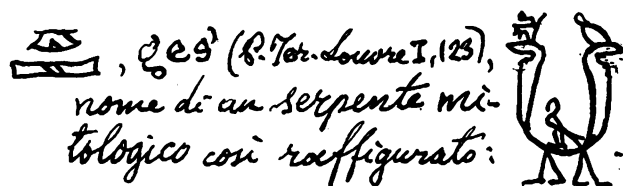 (P. Tor. Louvre I, 123),
nome di un serpente mi-
tologico così raffigurato: